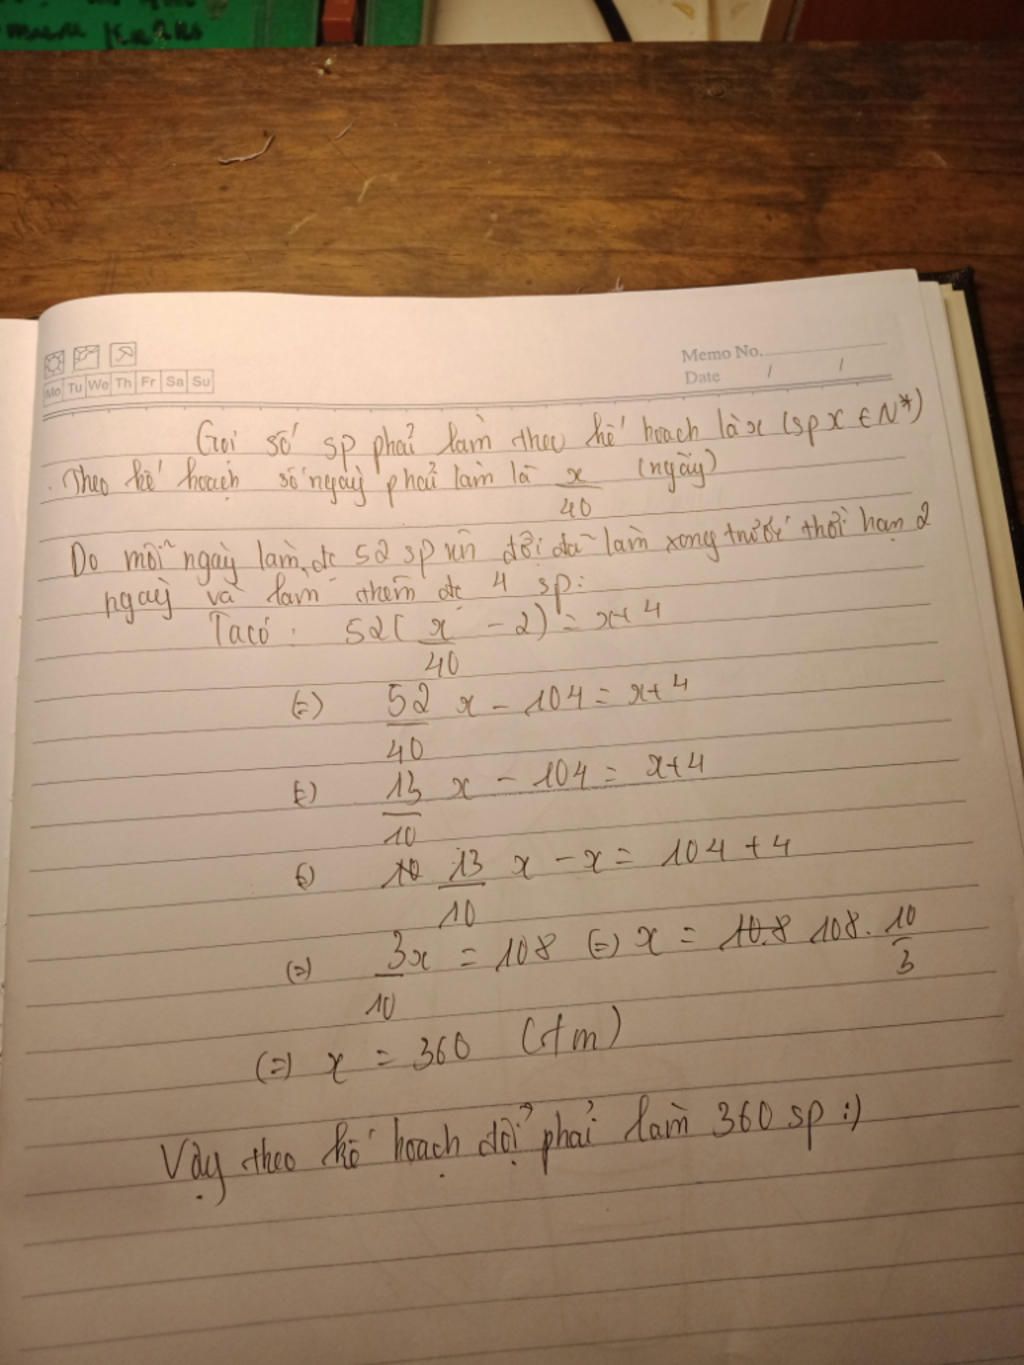 Memo No.
Date / /
Mo Tu We Th Fr Sa Su
Gọi số sp phải làm theo kế hoạch là x (sp x ∈ N*)
Theo kế hoạch số ngày phải làm là x/40 (ngày)
Do mỗi ngày làm đc 52 sp nên đội đã làm xong trước thời hạn 2
ngày và làm thêm đc 4 sp:
Ta có: 52(x/40 - 2) = x+4
(=) 52/40 x - 104 = x+4
(=) 13/10 x - 104 = x+4
(=) 13/10 x - x = 104 + 4
(=) 3x/10 = 108 (=) x = 10.8 108. 10/3
(=) x = 360 (tm)
Vậy theo kế hoạch đội phải làm 360 sp :)